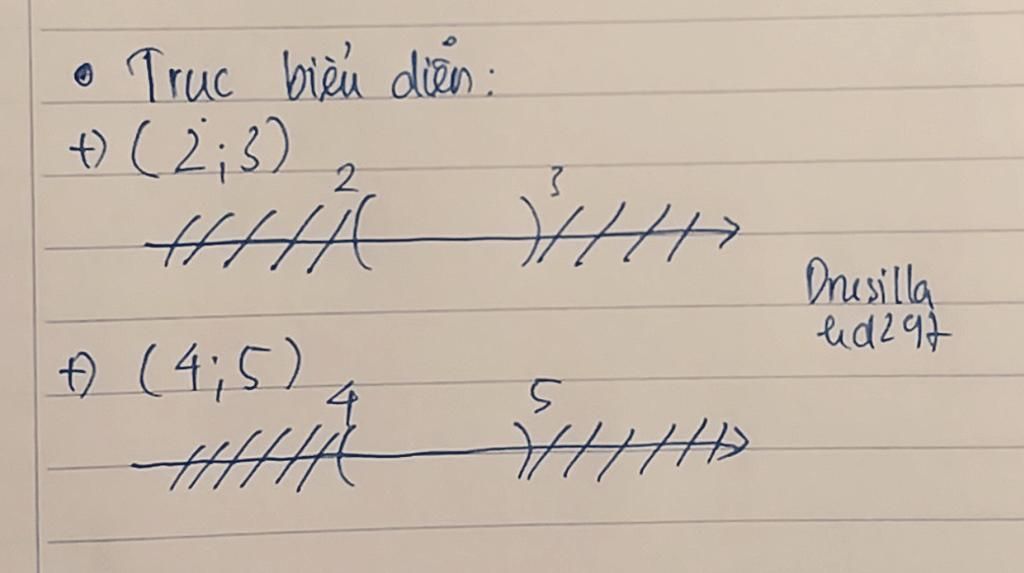 • Trục biểu diễn:
+) (2;3)
2 3
Drusilla
hd297
+) (4;5)
4 5